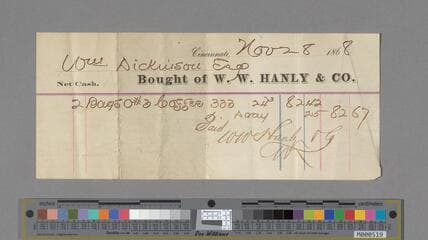 Cincinnati, Nov 28 1868
Wm Dickinson Esq
Net Cash. Bought of W. W. HANLY & CO.
2 Bags Coffee 333 24¾ 82 42
Dray 25 82 67
Paid
WW Hanly & Co
inches centimeters
M000519